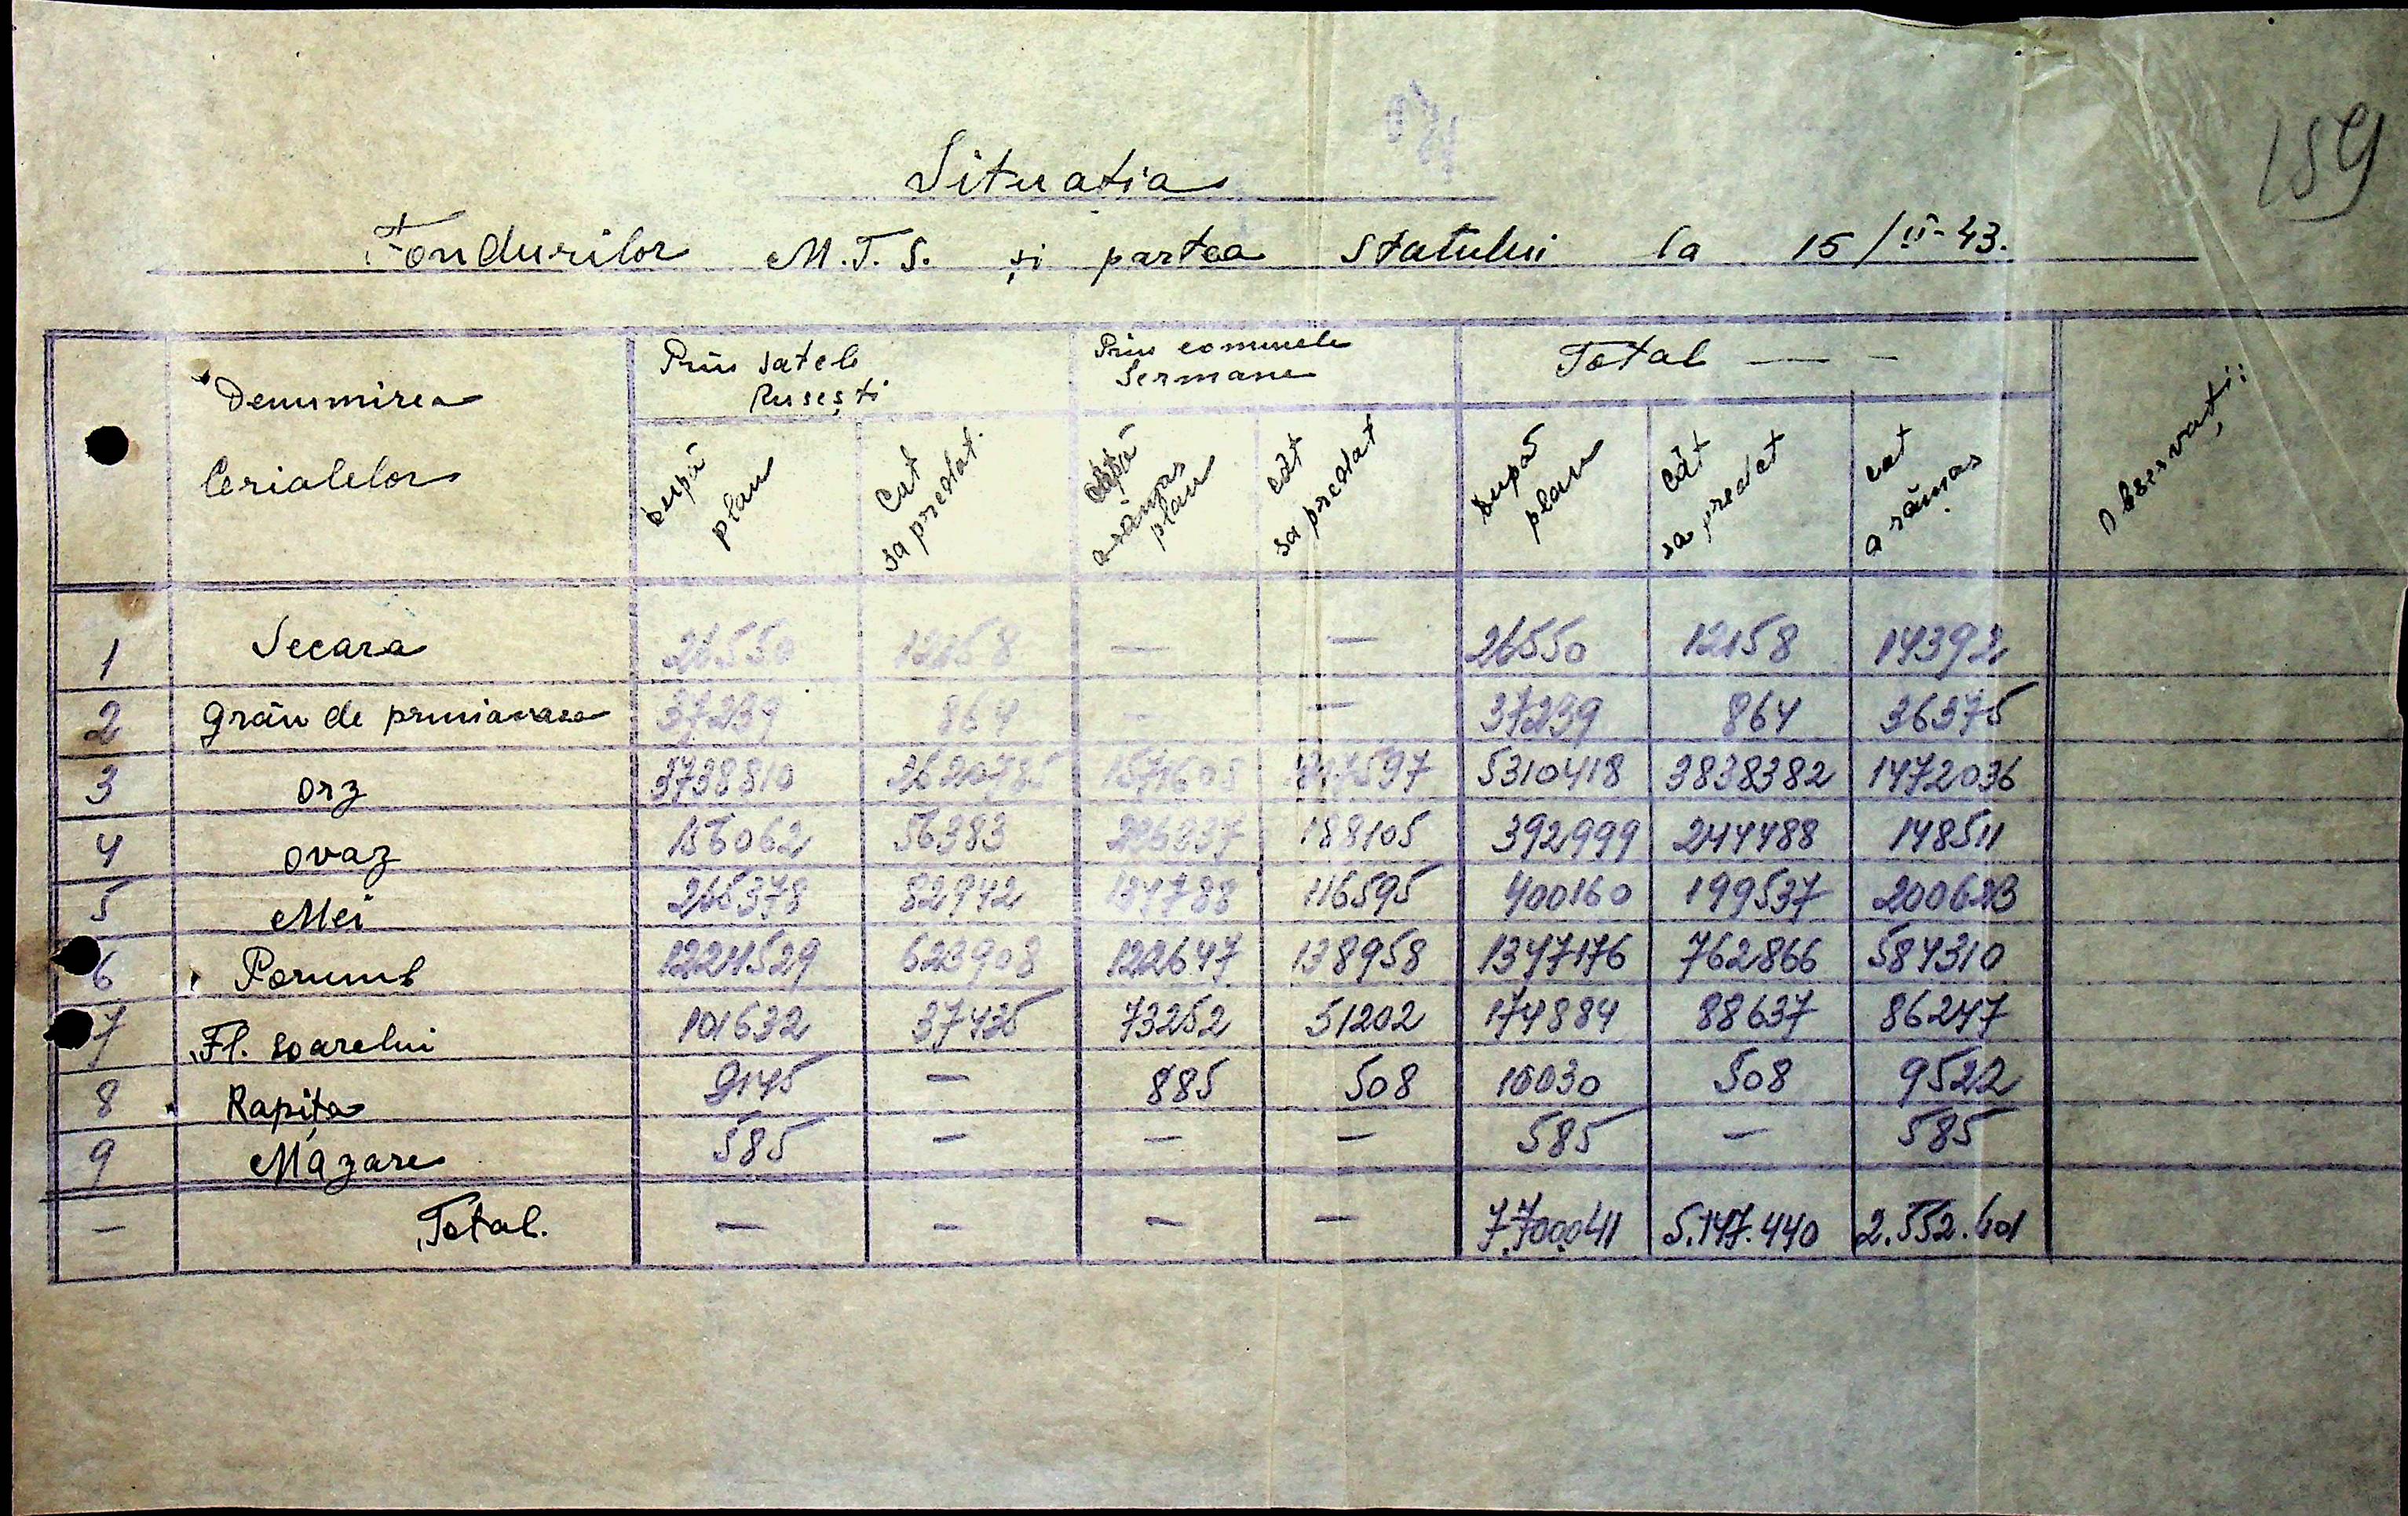 159
Situatia
Fondurilor M.T.S. și partea Statului la 15/II-43.
Denumirea Cerialelor
Prin satele Rusești
Prin comunele Germane
Total
Observații:
după plan
Cat sa predat.
după plan
cât sa predat
după plan
Cât sa predat
cat a rămas
1 Secara 26550 12158 — — 26550 12158 14392
2 Grâu de primiavara 37239 864 — — 37239 864 36375
3 orz 3738810 2620785 1571608 1217597 5310418 3838382 1472036
4 ovaz 156062 56383 188105 392999 244488 148511
5 Mei 265378 82942 134788 116595 400160 199537 200623
6 Porumb 1224529 623908 122647 138958 1347176 762866 584310
7 Fl. soarelui 101632 37435 73252 51202 174884 88637 86247
8 Rapița 9145 — 885 508 10030 508 9522
9 Mazare 585 — — — 585 — 585
— Total. — — — — 7.700041 5.147.440 2.552.601